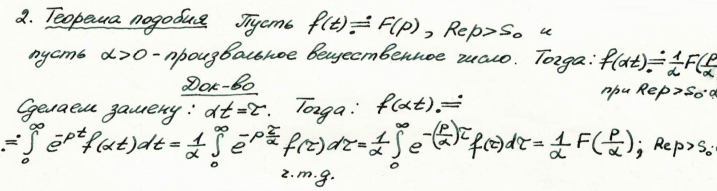 2. Теорема подобия Пусть f(t) ≓ F(p), Re p > S₀ и
пусть α>0 - произвольное вещественное число. Тогда: f(αt) ≓ 1/α F(p/
при Re p > S₀·α
Док-во
Сделаем замену: αt = τ. Тогда: f(αt) ≓
≓ ∫₀^∞ e^(-pt) f(αt)dt = 1/α ∫₀^∞ e^(-p τ/α) f(τ)dτ = 1/α ∫₀^∞ e^(-(p/α)τ) f(τ)dτ = 1/α F(p/α); Re p > S₀·
ч.т.д.